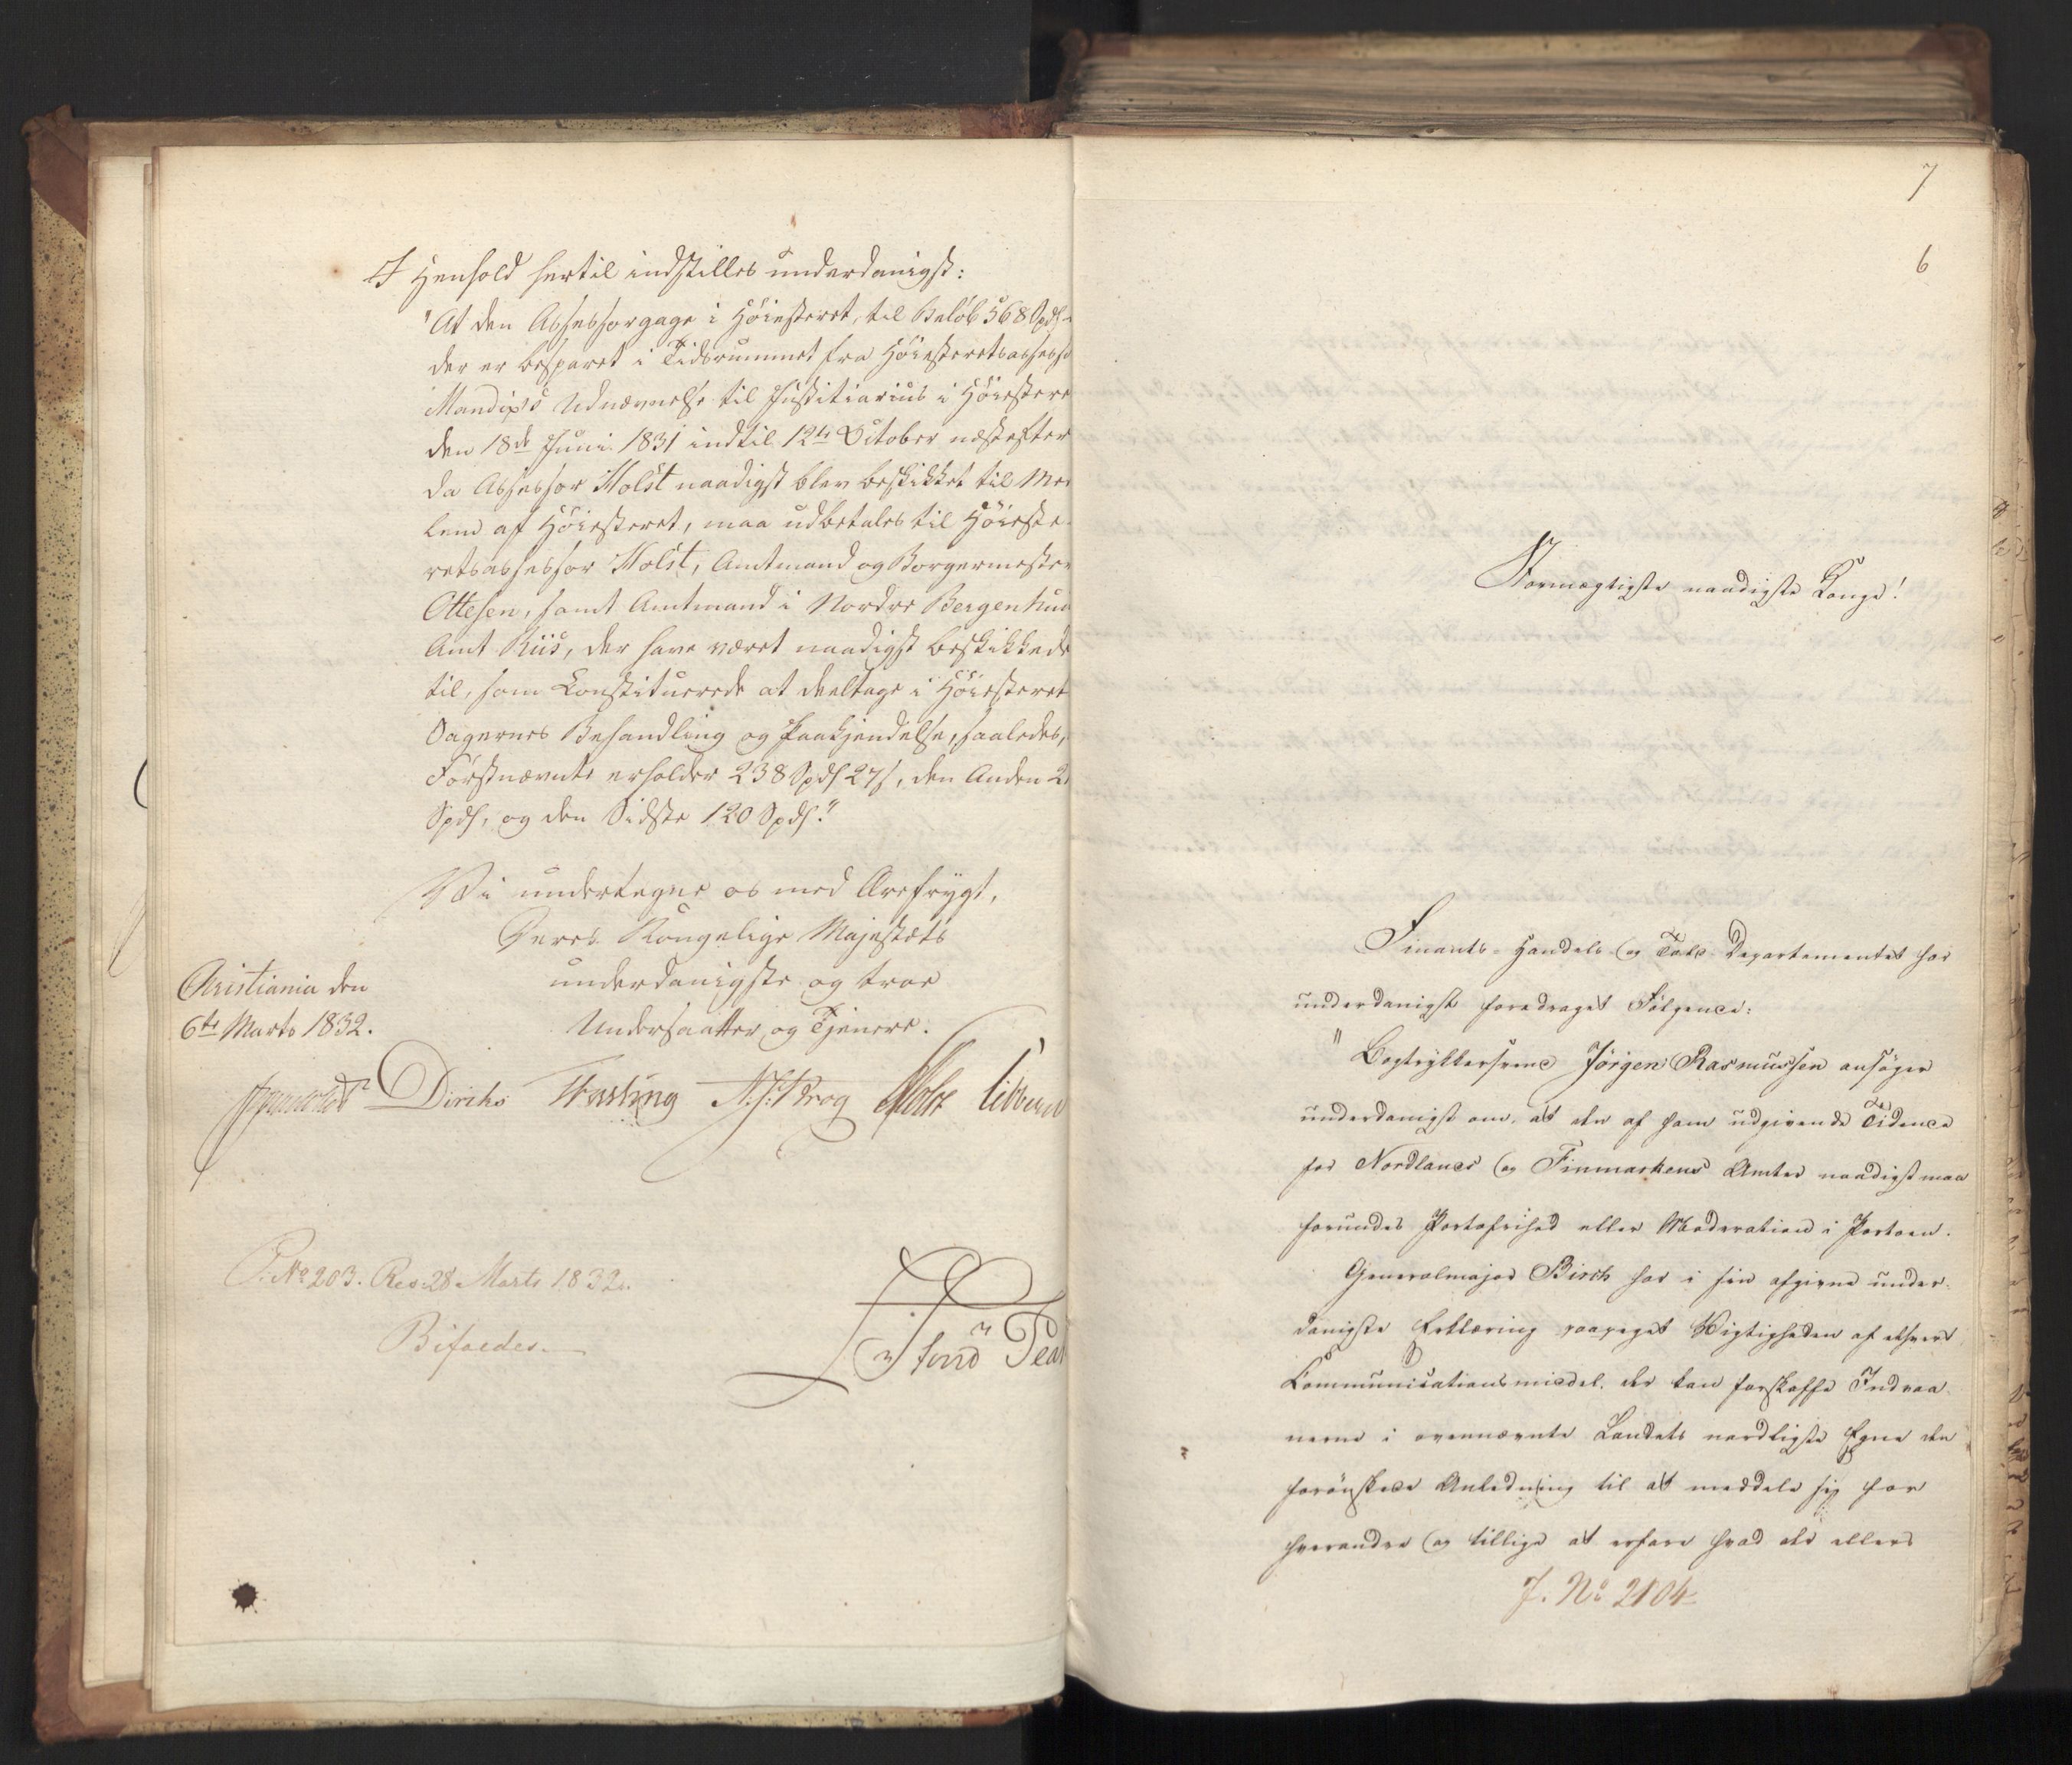 I Henhold hertil indstilles underdanigst:
"At den Assessorgage i Høiesteret, til Beløb 568 Spdlr
der er besparet i Tidsrummet fra Høiesteretsassesso
Mandix's Udnævnelse til Justitiarius i Høiestere
den 18de Juni 1831 indtil 12te October næstefter
da Assessor Holst naadigst blev beskikket til Me
lem af Høiesteret, maa udbetales til Høieste-
retsassessor Holst, Amtmand og Borgermester
Ottesen, samt Amtmand i Nordre Bergenhuu
Amt Riis, der have været naadigst beskikkede
til, som Constituerede at deeltage i Høiesteret
Sagernes Behandling og Paakjendelse, saaledes,
Førstnævnte erholder 238 Spdlr 27 s, den Anden 2
Spdlr, og den Sidste 120 Spdlr."
Vi undertegne os med Ærefrygt,
Deres Kongelige Majestæts
underdanigste og troe
Undersaatter og Tjenere.
Christiania den
6te Marts 1832.
Diriks Fasting N. J. Krog Holst Vibe
P. No 203. Res. 28 Marts 1832.
Bifaldes.
7
6
Stormægtigste naadigste Konge!
Finants- Handels- og Told-Departementet har
underdanigst foredraget Følgende:
"Bogtrykkersvend Jörgen Rasmussen ansøger
underdanigst om, at den af ham udgivende Tidende
for Nordlands og Finmarkens Amter naadigst maa
forundes Portofrihed eller Moderation i Portoen.
Generalmajor Birch har i sin afgivne under-
danigste Erklæring paapeget Vigtigheden af ethvert
Communicationsmiddel, der kan forskaffe Indvaa-
nerne i ovennævnte Landets nordligste Egne den
forønskede Anledning til at meddele sig for
hverandre og tillige at erfare hvad der ellers
J. No 2104